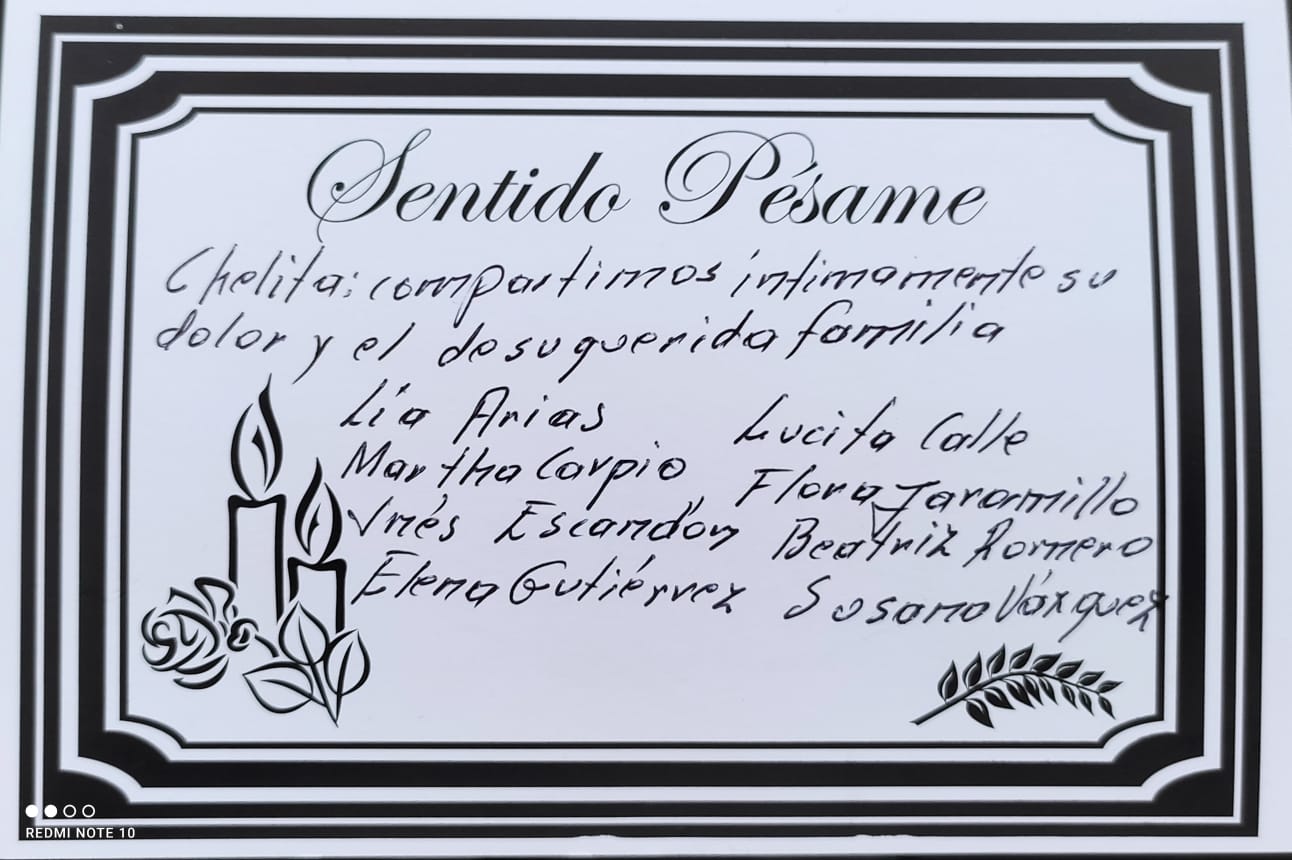 Sentido Pésame
Chelita: compartimos íntimamente su
dolor y el de su querida familia
Lía Arias
Lucita Calle
Martha Carpio
Flora Jaramillo
Ynés Escandón
Beatriz Romero
Elena Gutiérrez
Susana Vázquez
REDMI NOTE 10